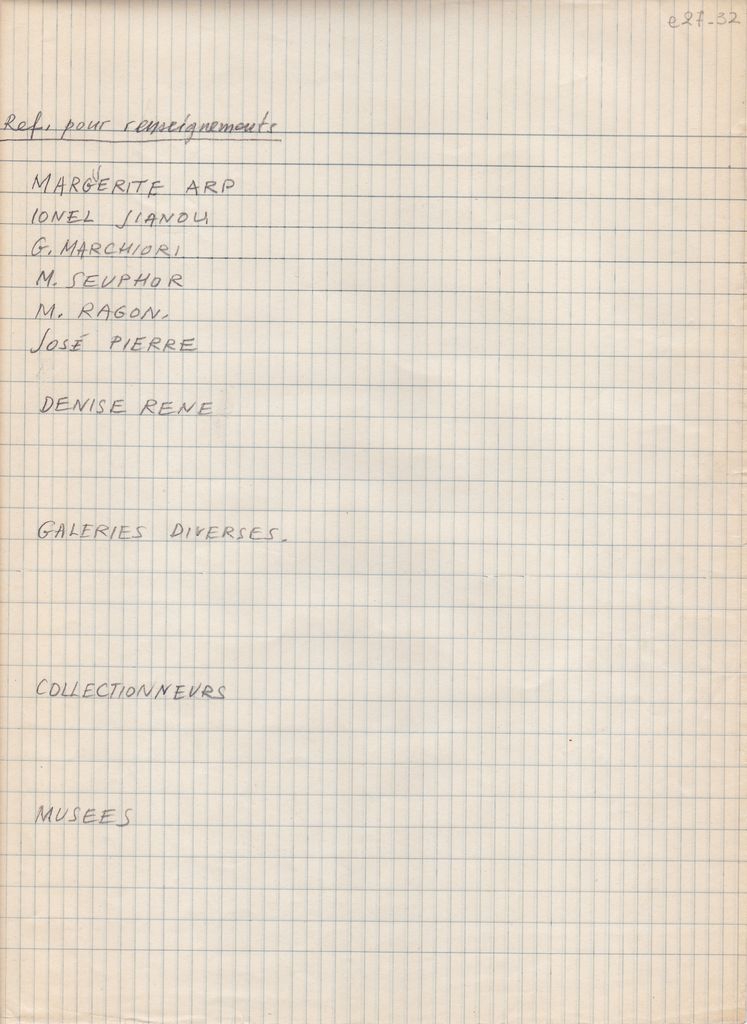 e27-32
Ref. pour renseignements
MARGUERITE ARP
IONEL JIANOU
G. MARCHIORI
M. SEUPHOR
M. RAGON.
JOSÉ PIERRE
DENISE RENE
GALERIES DIVERSES.
COLLECTIONNEURS
MUSEES